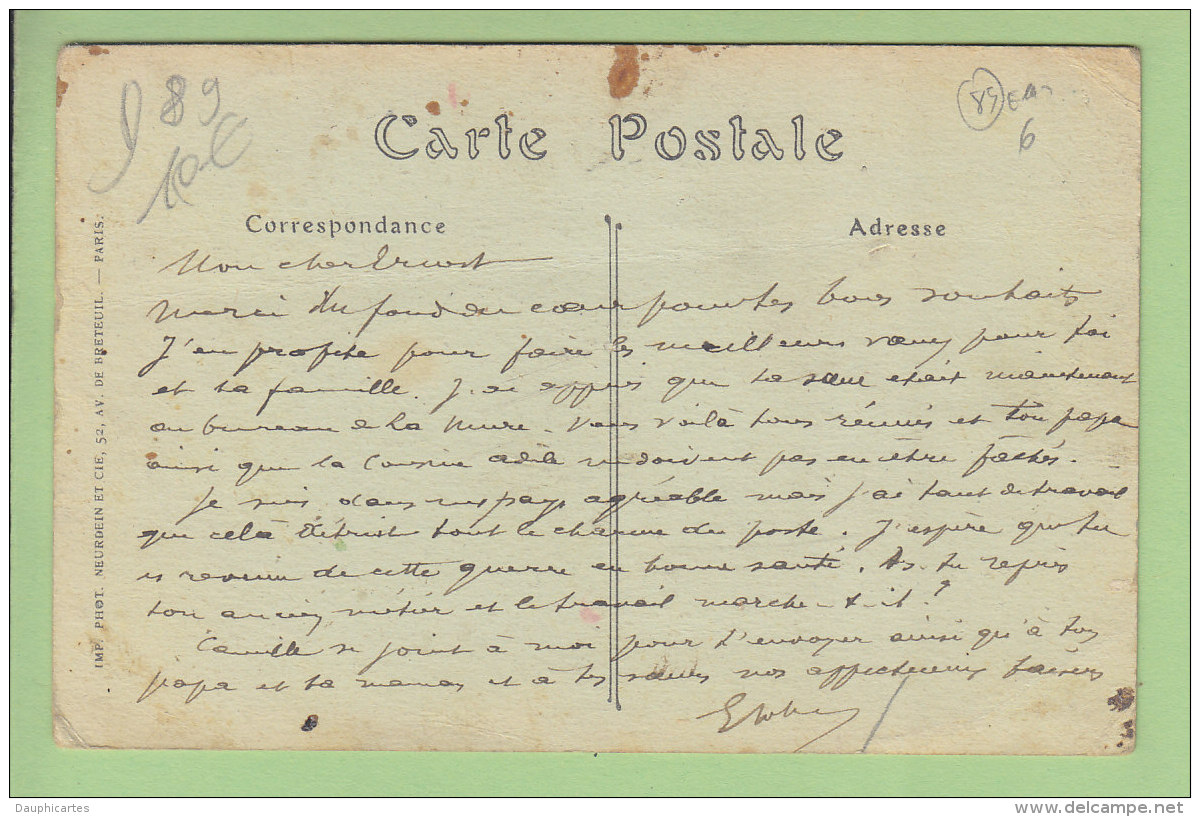 89
10 €
85
6
Carte Postale
Correspondance
Adresse
IMP. PHOT. NEURDEIN ET CIE, 52, AV. DE BRETEUIL. — PARIS.
Mon cher Ernest
Merci du fond du cœur pour tes bons souhaits
J'en profite pour faire les meilleurs vœux pour toi
et ta famille. J'ai appris que ta sœur était maintenant
au bureau de La Mure. Vous voilà tous réunis et ton papa
ainsi que la Cousine Adèle ne doivent pas en être fâchés.
Je suis dans un pays agréable mais j'ai tant de travail
que celà détruit tout le charme du poste. J'espère que tu
es revenu de cette guerre en bonne santé. As-tu repris
ton ancien métier et le travail marche-t-il ?
Camille se joint à moi pour t'envoyer ainsi qu'à ton
papa et ta maman et à tes sœurs nos affectueux baisers
Dauphicartes
www.delcampe.net